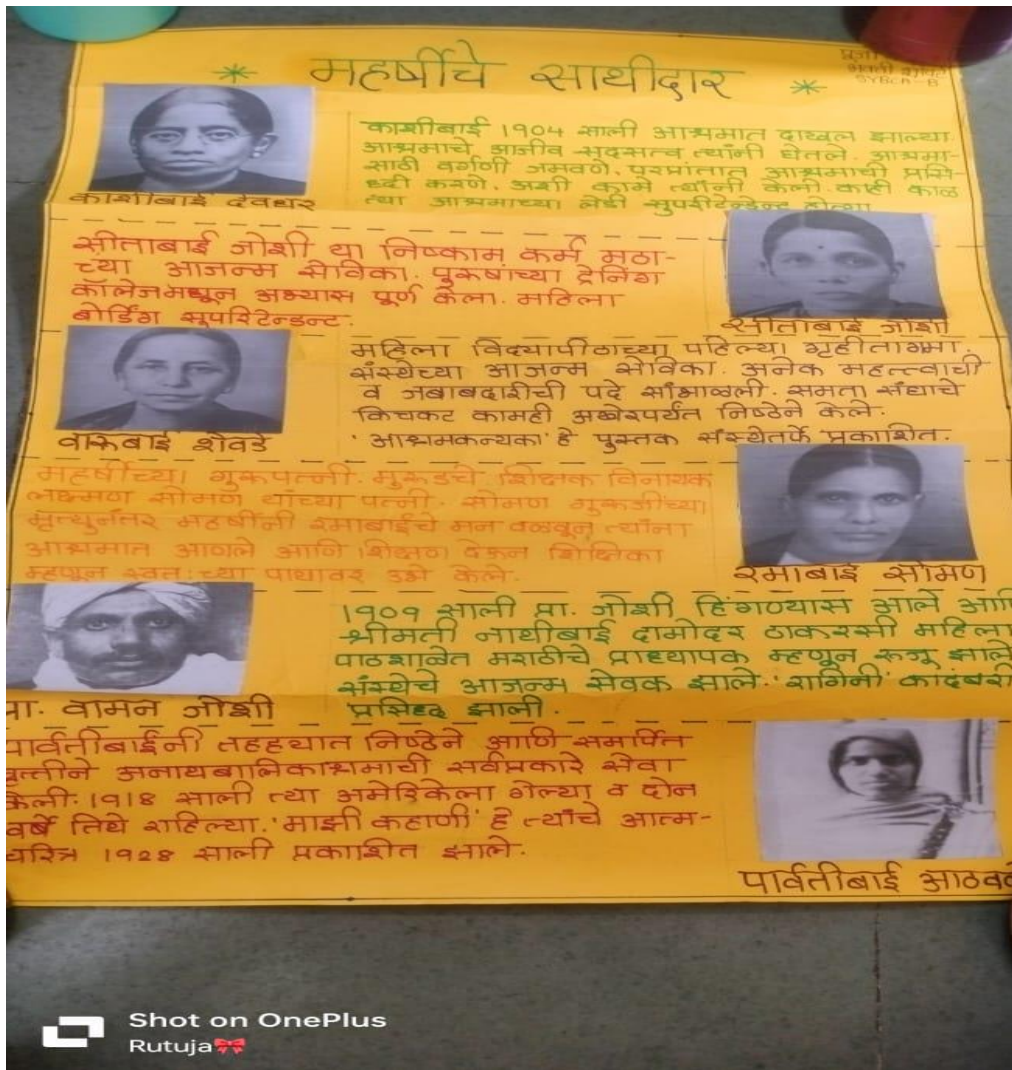 महर्षींचे साथीदार
SYBCA-B
काशीबाई 1904 साली आश्रमात दाखल झाल्या.
आश्रमाचे आजीव सदसत्व त्यांनी घेतले. आश्रमा-
साठी वर्गणी जमवणे, परप्रांतात आश्रमाची प्रसि-
ध्दी करणे. अशी कामे त्यांनी केली. काही काळ
त्या आश्रमाच्या लेडी सुपरिटेन्डेन्ट होत्या
काशीबाई देवधर
सीताबाई जोशी या निष्काम कर्म मठा-
च्या आजन्म सेविका. पुरूषांच्या ट्रेनिंग
कॉलेजमधून अभ्यास पूर्ण केला. महिला
बोर्डिंग सूपरिटेन्डन्ट.
सीताबाई जोशी
महिला विद्यापीठाच्या पहिल्या गृहीतागमा.
संस्थेच्या आजन्म सेविका. अनेक महत्त्वाची
व जबाबदारीची पदे सांभाळली. समता संघाचे
किचकट कामही अखेरपर्यंत निष्ठेने केले.
'आश्रमकन्यका' हे पुस्तक संस्थेतर्फे प्रकाशित.
वारूबाई शेवडे
महर्षींच्या गुरूपत्नी. मुरुडचे शिक्षक विनायक
लक्ष्मण सोमण यांच्या पत्नी. सोमण गुरूजींच्या
मृत्युनंतर महर्षींनी रमाबाईंचे मन वळवून त्यांना
आश्रमात आणले आणि शिक्षण देऊन शिक्षिका
म्हणून स्वतःच्या पायावर उभे केले.
रमाबाई सोमण
1909 साली प्रा. जोशी हिंगण्यास आले आणि
श्रीमती नाथीबाई दामोदर ठाकरसी महिला
पाठशाळेत मराठीचे प्राध्यापक म्हणून रूजू झाले
संस्थेचे आजन्म सेवक झाले. 'रागिनी' कादंबरी
प्रसिद्ध झाली.
प्रा. वामन जोशी
पार्वतीबाईंनी तहहयात निष्ठेने आणि समर्पित
वृत्तीने अनाथबालिकाश्रमाची सर्वप्रकारे सेवा
केली. 1918 साली त्या अमेरिकेला गेल्या व दोन
वर्षे तिथे राहिल्या. 'माझी कहाणी' हे त्यांचे आत्म-
चरित्र 1928 साली प्रकाशित झाले.
पार्वतीबाई आठवले
Shot on OnePlus
Rutuja